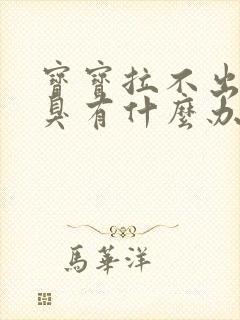 寶寶拉不出
臭有什麼办
馬華洋